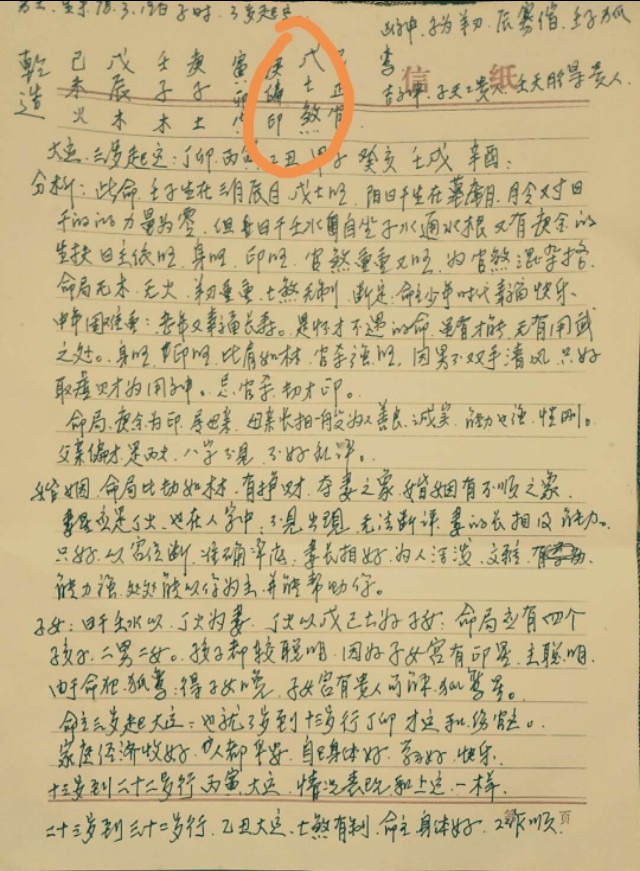 凶神,子为羊刃,辰寡宿,壬子孤
乾 己 戊 壬 庚 寅 庚 戊 己 鸾
造 未 辰 子 子 卯 偏 七 正
火 木 木 土 印 煞 官
信纸
吉神,子天乙贵人,壬天月德贵人
大运,三岁起运:丁卯 丙寅 乙丑 甲子 癸亥 壬戌 辛酉:
分析:此命,壬子生在三月辰月,戊土旺,阳日干生在墓库月,月令对日
干的力量为零,但日干壬水自坐子水通水根,又有庚金的
生扶,日主纸旺,身旺,印旺,官煞重重又旺,为官煞混杂格
命局无木,无火,羊刃重重,七煞无制,断定,命主少年时代幸福快乐
中年困难重:老年又幸福长寿。是怀才不遇的命,虽有才能,无有用武
之处。身旺,印旺,比肩如林,官杀强旺,因男不双手清风,只好
取虚财才为用神。忌官杀,劫才印。
命局,庚金为印,母亲长相一般为人善良,诚实,能力也强,性刚。
父亲偏才是丙火,八字不见,不好乱评。
婚姻,命局比劫如林,有争财,夺妻之象,婚姻有不顺之象,
妻星应是丁火,也在八字中,不见出现,无法断评,妻的长相及能力。
只好,以宫位断,准确率底,妻长相好,为人活泼,文雅
能力强,处处能以你为主,并能帮助你。
子女:日干壬水以,丁火为妻,丁火以戊己土为子女:命局应有四个
孩子,二男二女。孩子都较聪明,因为子女宫有印星,主聪明,
由于命犯,孤鸾,得子女晚,子女宫有贵人可解,孤鸾星。
命主三岁起大运:也就3岁到十三岁行丁卯才运和伤官运。
家庭经济收好,家人都平安,自己身体好,学习好,快乐
十三岁到二十二岁行丙寅,大运,情况表现和上运,一样,
二十三岁到三十二岁行,乙丑大运,七煞有制,命主身体好,工作顺
页